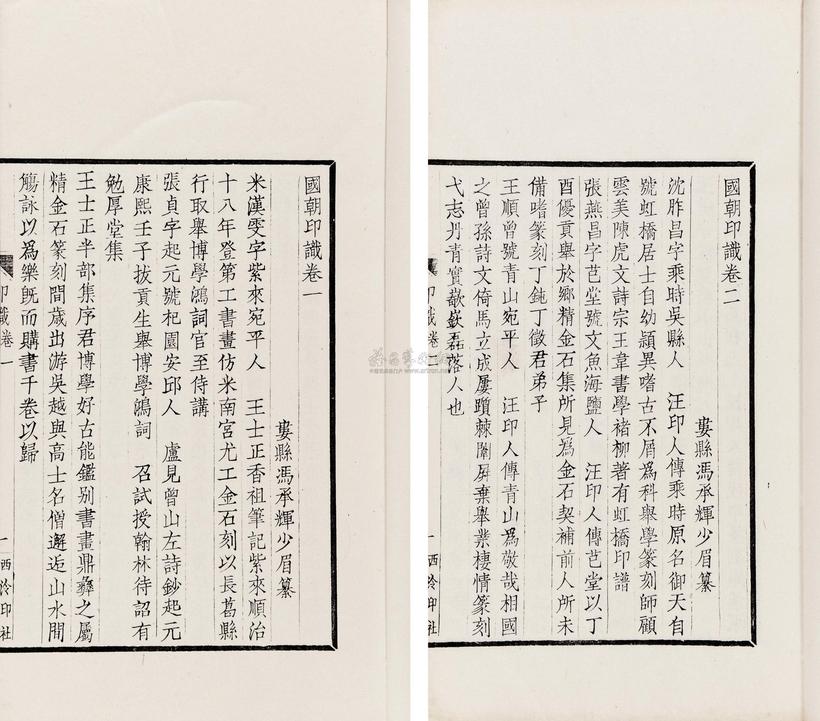 國朝印識卷一
婁縣馮承輝少眉纂
米漢雯字紫來宛平人 王士正香祖筆記紫來順治
十八年登第工書畫仿米南宮尤工金石刻以長葛縣
行取舉博學鴻詞官至侍講
張貞字起元號杞園安邱人 盧見曾山左詩鈔起元
康熙壬子拔貢生舉博學鴻詞 召試授翰林待詔有
勉厚堂集
王士正半部集序君博學好古能鑑别書畫鼎彝之屬
精金石篆刻間歲出游吳越與高士名僧邂逅山水間
觴詠以為樂旣而購書千卷以歸
印識卷一
一
西泠印社
國朝印識卷二
婁縣馮承輝少眉纂
沈胙昌字乘時吳縣人 汪印人傳乘時原名御天自
號虹橋居士自幼穎異嗜古不屑為科舉學篆刻師顧
雲美陳虎文詩宗王韋書學褚柳著有虹橋印譜
張燕昌字芑堂號文魚海鹽人 汪印人傳芑堂以丁
酉優貢舉於鄉精金石集所見為金石契補前人所未
備嗜篆刻丁鈍丁徵君弟子
王順曾號青山宛平人 汪印人傳青山為敬哉相國
之曾孫詩文倚馬立成屢躓棘闈屏棄舉業棲情篆刻
弋志丹青實歊嶔磊落人也
印識卷二
一
西泠印社